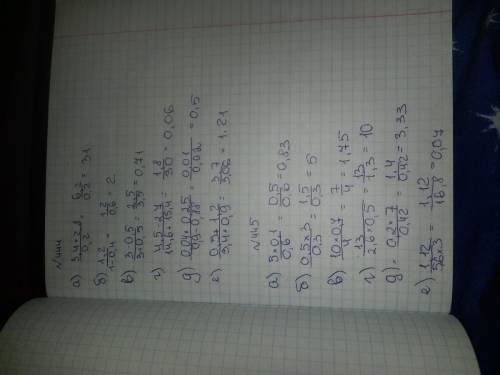 №444
а) (3,4+2,8)/0,2 = 6,2/0,2 = 31
б) 1,2/(1-0,4) = 1,2/0,6 = 2
в) (3-0,5)/(3+0,5) = 2,5/3,5 = 0,71
г) (4,5-2,7)/(14,6+15,4) = 1,8/30 = 0,06
= 0,01/0,02 = 0,5
= 3,7/3,06 = 1,21
№445
а) 5×0,1/0,6 = 0,5/0,6 = 0,83
б) 0,5×3/0,3 = 1,5/0,3 = 5
в) 10×0,7/4 = 7/4 = 1,75
г) 13/(2,6×0,5) = 13/1,3 = 10
д) 0,2×7/0,42 = 1,4/0,42 = 3,33
е) 1,12/(56×3) = 1,12/16,8 = 0,07